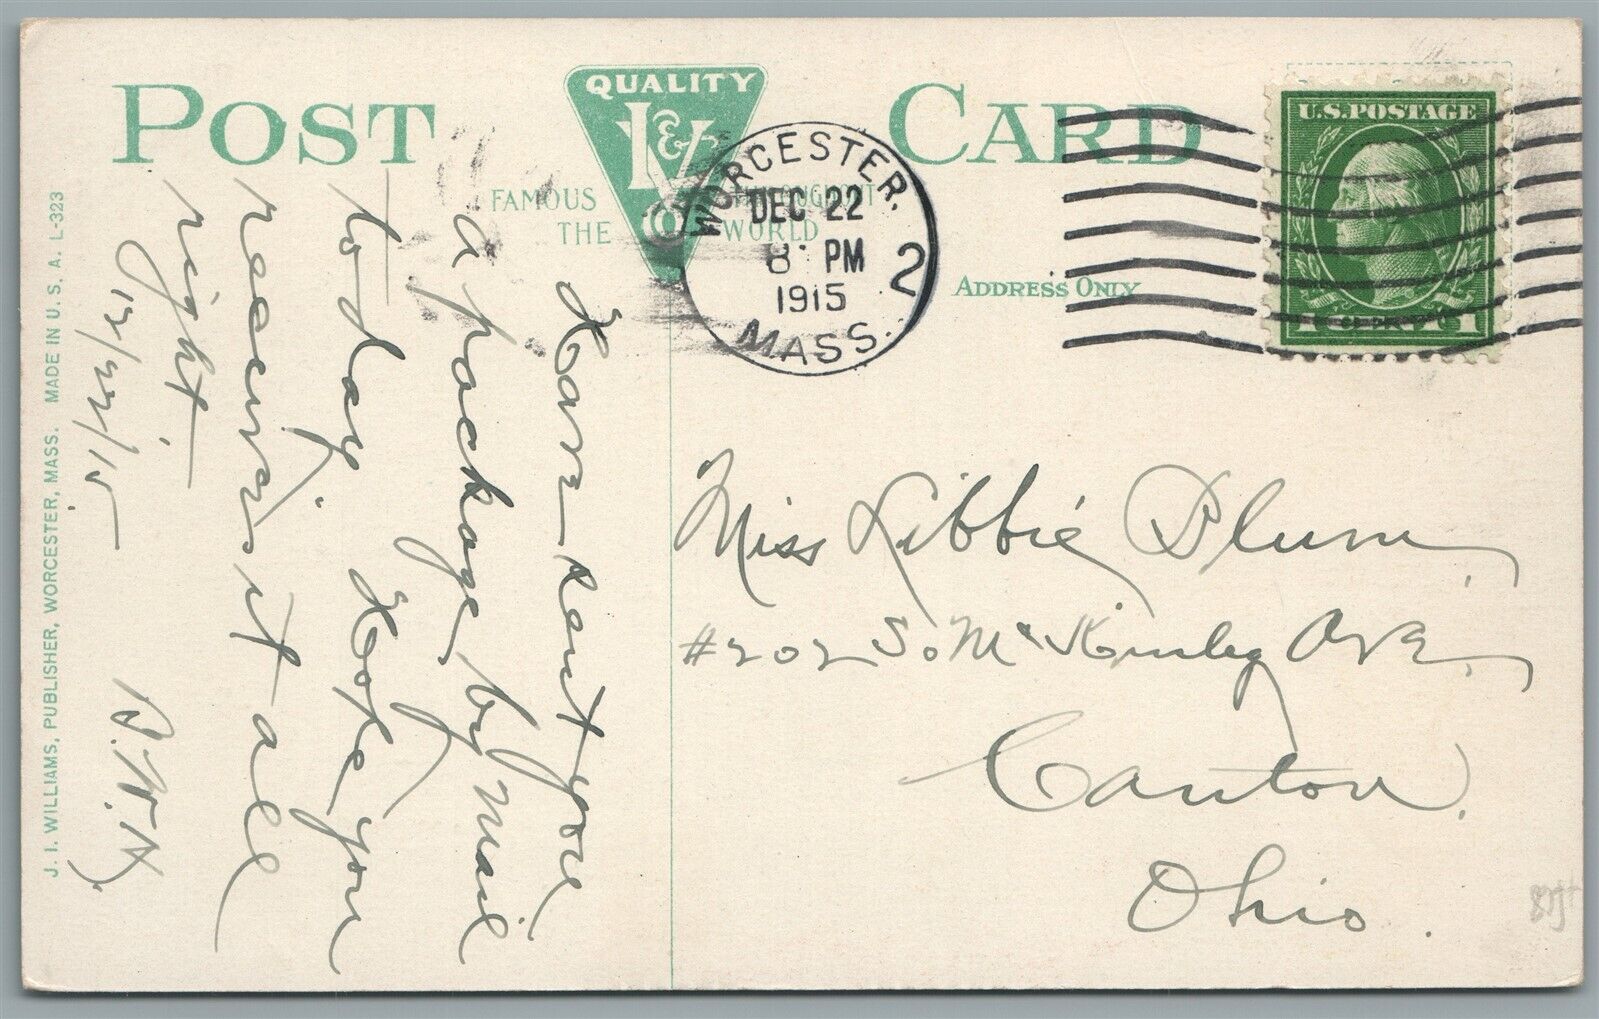 POST CARD
QUALITY
I & V
FAMOUS THROUGHOUT
THE WORLD
WORCESTER,
DEC 22
8 PM
1915
MASS.
2
ADDRESS ONLY
U.S. POSTAGE
1 CENT 1
Have sent you
a package by mail
to day. Hope you
receive it all
right
12/22/15
B.W.H.
Miss Libbie Blum,
#202 So Mc Kinley Ave,
Canton,
Ohio.
J. I. WILLIAMS, PUBLISHER, WORCESTER, MASS. MADE IN U. S. A. L-323